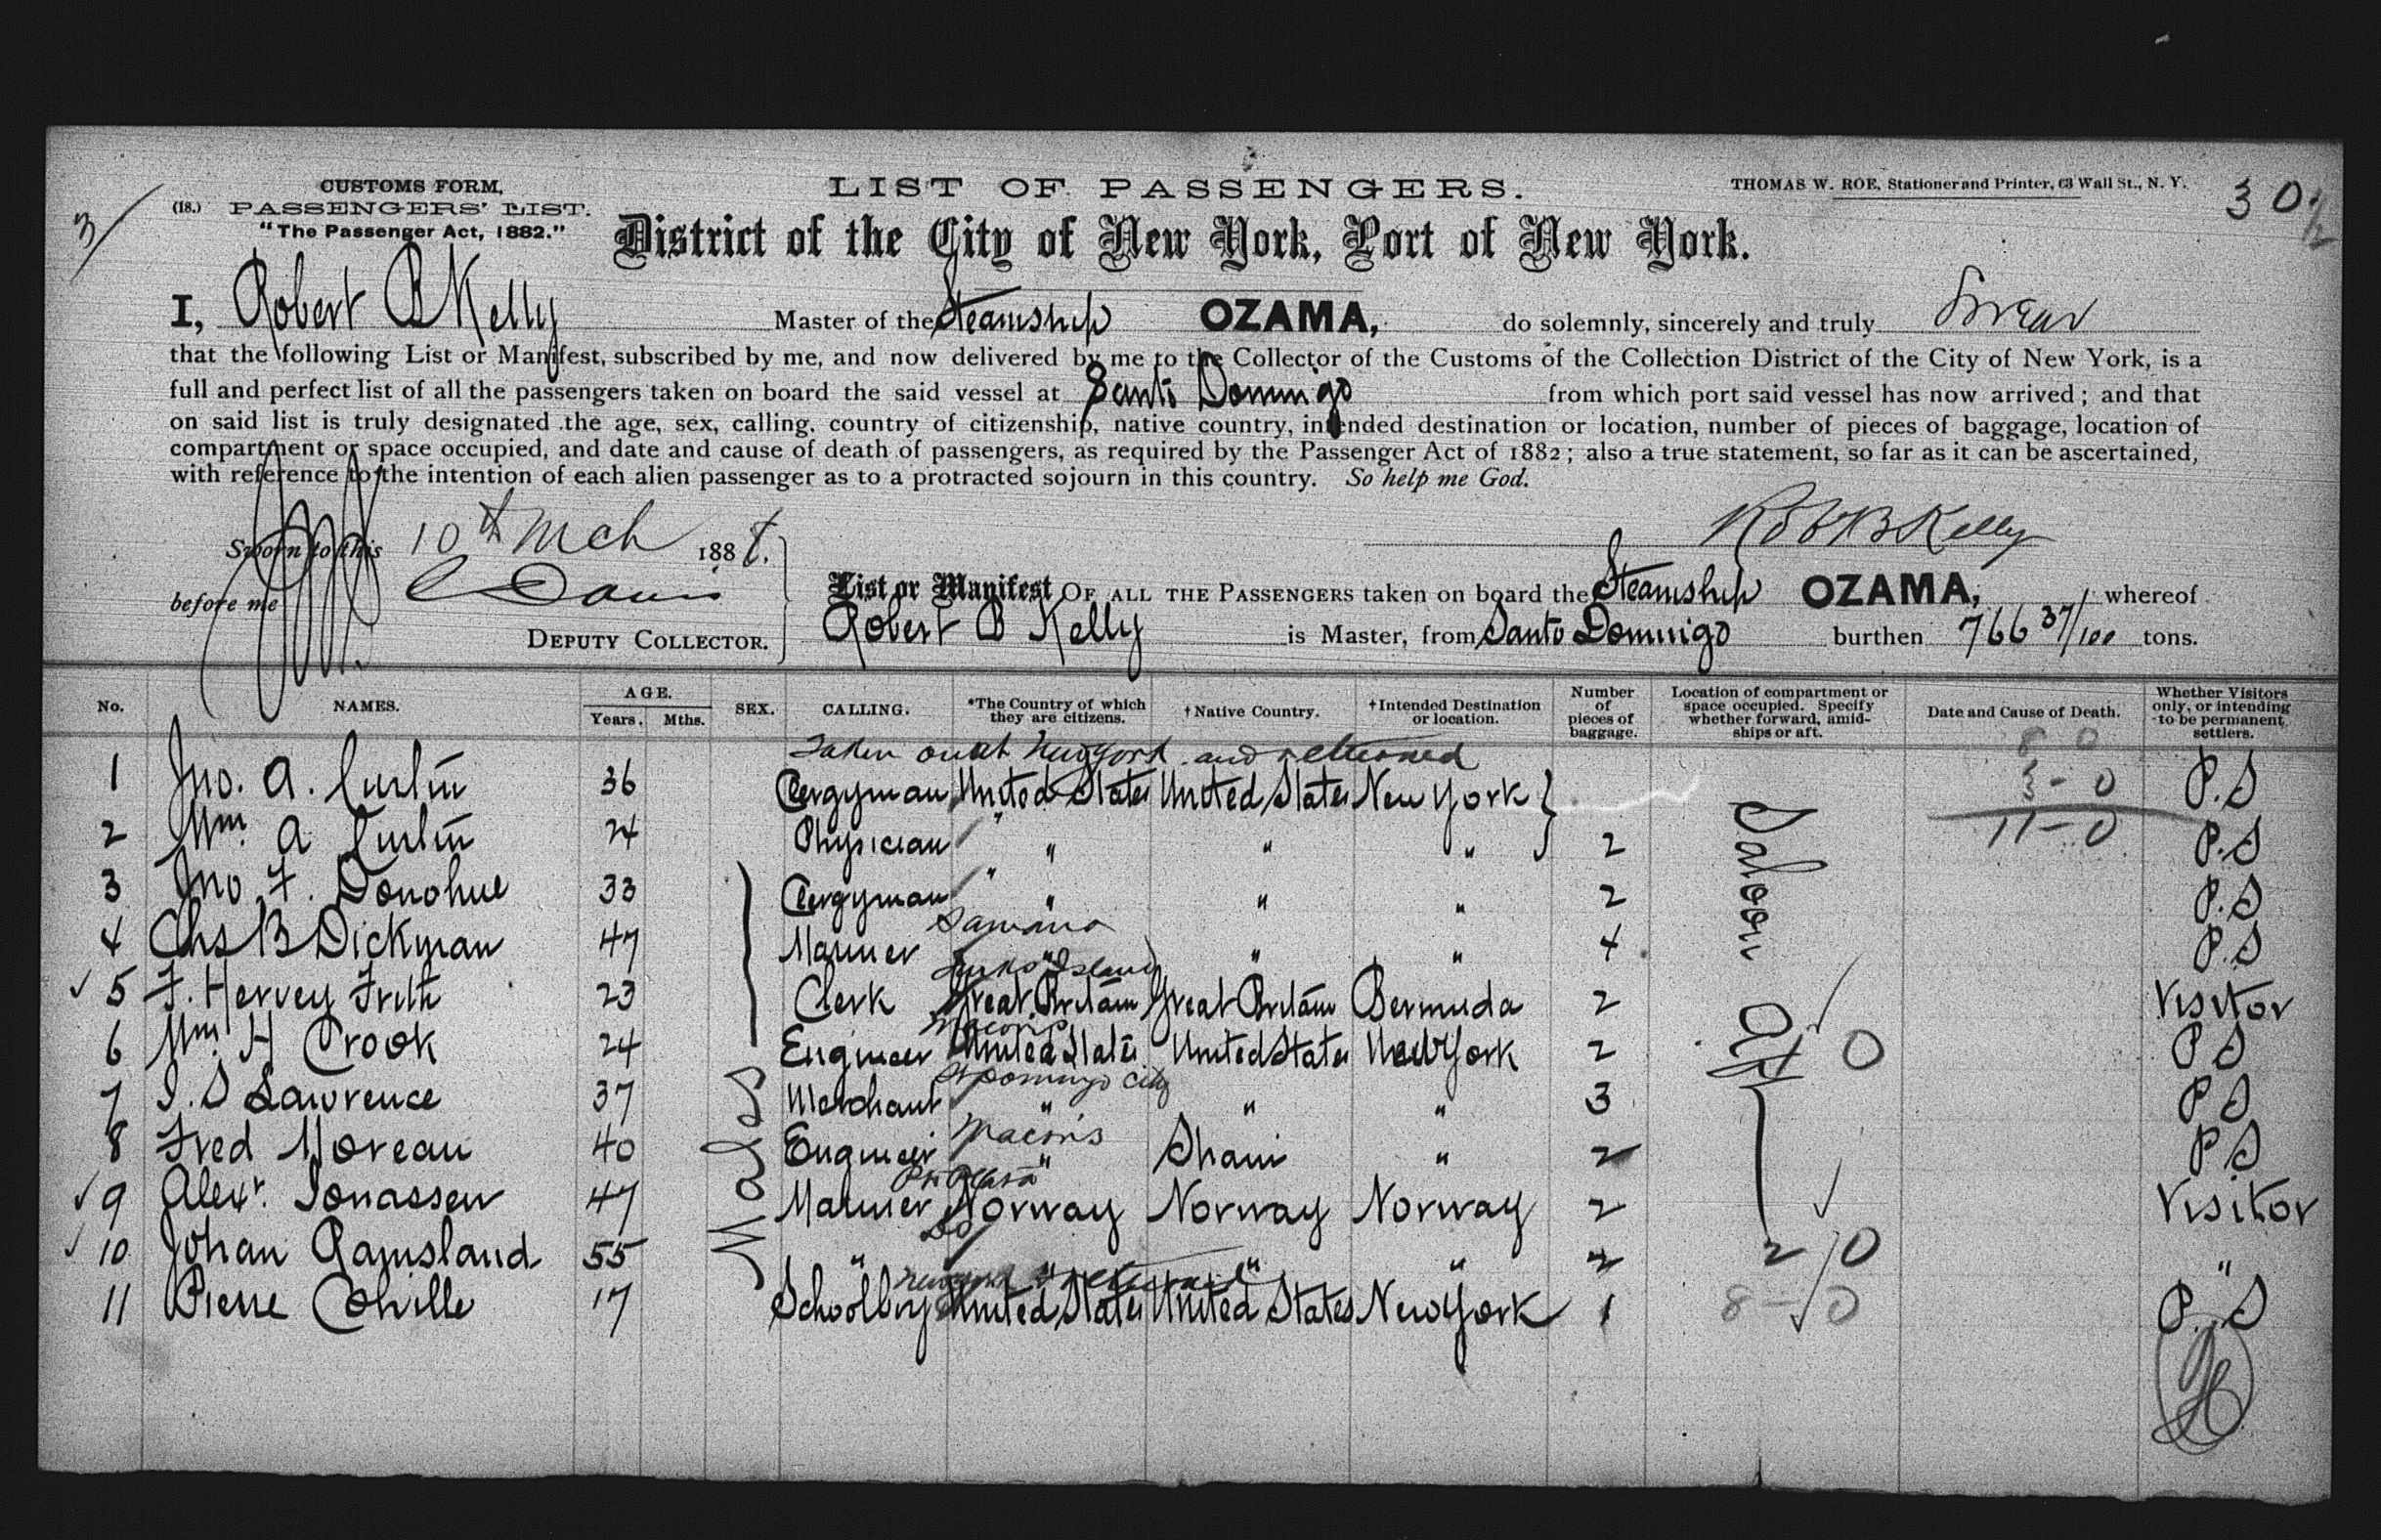 CUSTOMS FORM,
(18.) PASSENGERS' LIST.
"The Passenger Act, 1882."
3
LIST OF PASSENGERS.
THOMAS W. ROE, Stationer and Printer, 63 Wall St., N. Y.
30
District of the City of New York, Port of New York.
I, Robert B Kelly Master of the Steamship OZAMA, do solemnly, sincerely and truly Swear
that the following List or Manifest, subscribed by me, and now delivered by me to the Collector of the Customs of the Collection District of the City of New York, is a
full and perfect list of all the passengers taken on board the said vessel at Santo Domingo from which port said vessel has now arrived; and that
on said list is truly designated the age, sex, calling, country of citizenship, native country, intended destination or location, number of pieces of baggage, location of
compartment or space occupied, and date and cause of death of passengers, as required by the Passenger Act of 1882; also a true statement, so far as it can be ascertained,
with reference to the intention of each alien passenger as to a protracted sojourn in this country. So help me God.
Sworn to this 10th Mch 188
Robt B Kelly
before me C Davis
DEPUTY COLLECTOR.
List or Manifest OF ALL THE PASSENGERS taken on board the Steamship OZAMA, whereof
Robert B Kelly is Master, from Santo Domingo burthen 766 37/100 tons.
No. NAMES. AGE. Years. Mths. SEX. CALLING. *The Country of which they are citizens. †Native Country. †Intended Destination or location. Number of pieces of baggage. Location of compartment or space occupied. Specify whether forward, amidships or aft. Date and Cause of Death. Whether Visitors only, or intending to be permanent settlers.
Taken out at New York and returned
8 0
1 Jno. A. 36 Clergyman United States United States New York } 3-0 P.S
2 Wm. A 24 Physician " " " 2 11-0 P.S
3 Jno. F. Donohue 33 Clergyman " " " 2 P.S
Samana
4 Chs B Dickman 47 Mariner " " " 4 P.S
Turks Island
5 F. Hervey Frith 23 Clerk Great Britain Great Britain Bermuda 2 Visitor
Macoris
6 Wm. H Crook 24 Engineer United States United States New York 2 0 P S
St Domingo City
7 J. S Lawrence 37 Merchant " " " 3 P S
Macoris
8 Fred Moreau 40 Engineer " " 2 P S
Pt Plata
9 Alexr. Jonassen 47 Mariner Norway Norway Norway 2 Visitor
Do
10 Johan Ramsland 55 " " " " 2 2 0 "
New York returned
11 Pierre 17 Schoolboy United States United States New York 1 8-0 P. S
Males
Saloon
aft